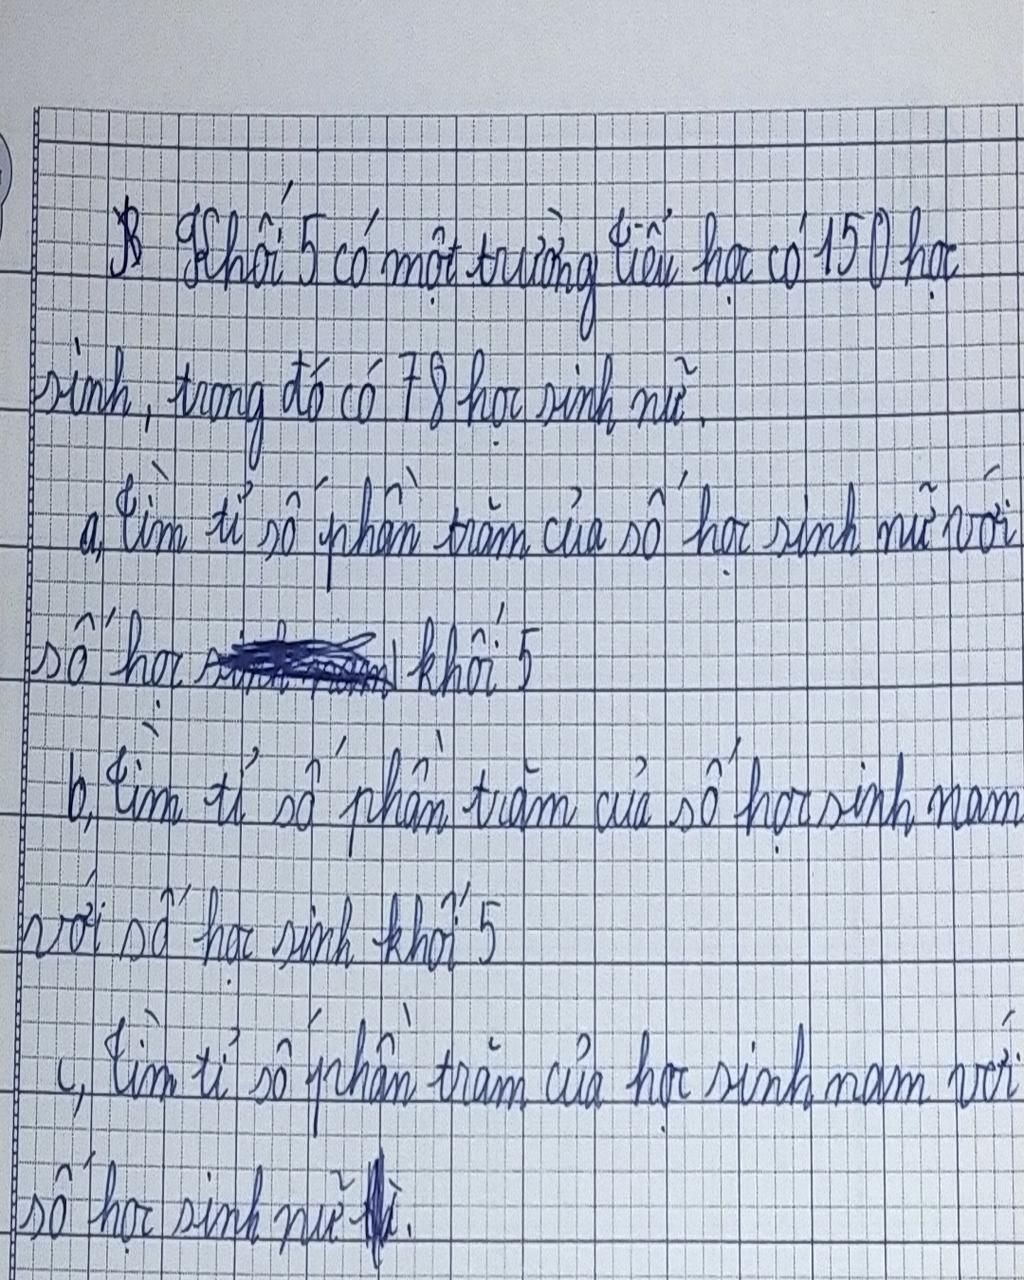 Khối 5 có một trường tiểu học có 150 học
sinh, trong đó có 78 học sinh nữ.
a, tìm tỉ số phần trăm của số học sinh nữ với
số học khối 5
b, tìm tỉ số phần trăm của số học sinh nam
với số học sinh khối 5
c, tìm tỉ số phần trăm của học sinh nam với
số học sinh nữ